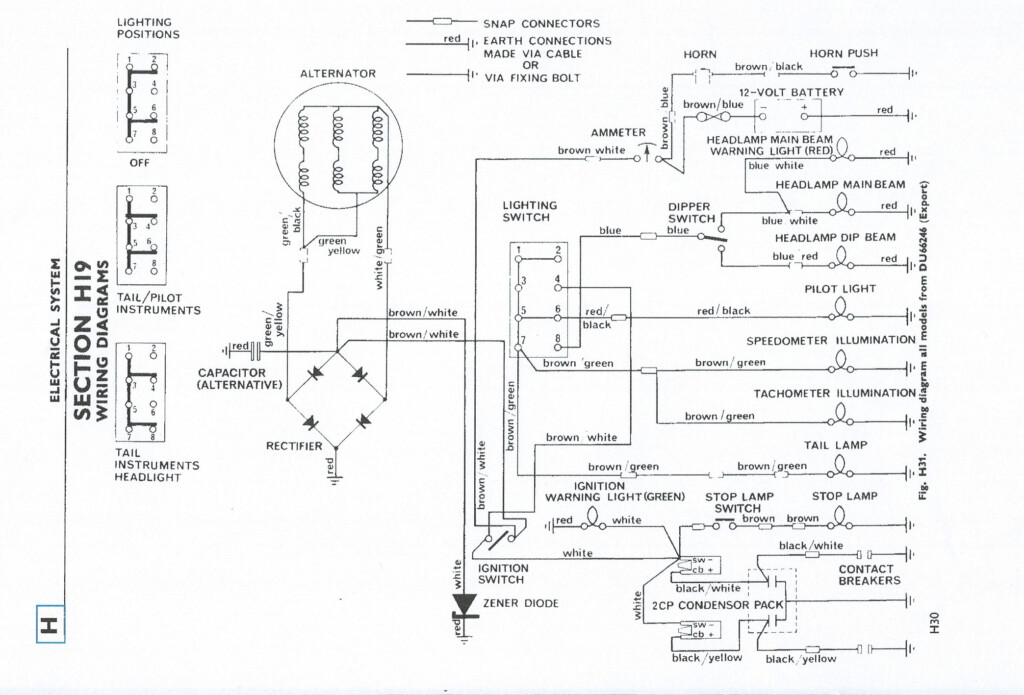 ELECTRICAL SYSTEM
SECTION H19
WIRING DIAGRAMS
H
LIGHTING
POSITIONS
1 2
3 4
5 6
7 8
OFF
1 2
3 4
5 6
7 8
TAIL/PILOT
INSTRUMENTS
1 2
3 4
5 6
7 8
TAIL
INSTRUMENTS
HEADLIGHT
SNAP CONNECTORS
red
EARTH CONNECTIONS
MADE VIA CABLE
OR
VIA FIXING BOLT
ALTERNATOR
green/
black
green
yellow
white/green
green/
yellow
red
CAPACITOR
(ALTERNATIVE)
RECTIFIER
red
brown/white
brown/white
AMMETER
brown white
brown blue
HORN
HORN PUSH
brown/black
12-VOLT BATTERY
brown/blue
- +
red
HEADLAMP MAIN BEAM
WARNING LIGHT (RED)
red
blue white
HEADLAMP MAIN BEAM
blue white
red
LIGHTING
SWITCH
DIPPER
SWITCH
blue
blue
HEADLAMP DIP BEAM
blue red
red
1 2
3 4
5 6
7 8
PILOT LIGHT
red/
black
red/black
red
SPEEDOMETER ILLUMINATION
brown green
brown/green
red
TACHOMETER ILLUMINATION
brown/green
red
brown/green
brown white
TAIL LAMP
brown/green
brown/green
red
brown/white
IGNITION
WARNING LIGHT (GREEN)
red
white
STOP LAMP
SWITCH
STOP LAMP
brown
brown
red
white
IGNITION
SWITCH
white
ZENER DIODE
red
white
sw -
cb +
black/white
black/white
CONTACT
BREAKERS
2CP CONDENSOR PACK
sw -
cb +
black/yellow
black/yellow
Fig. H31. Wiring diagram all models from DU66246 (Export)
H30